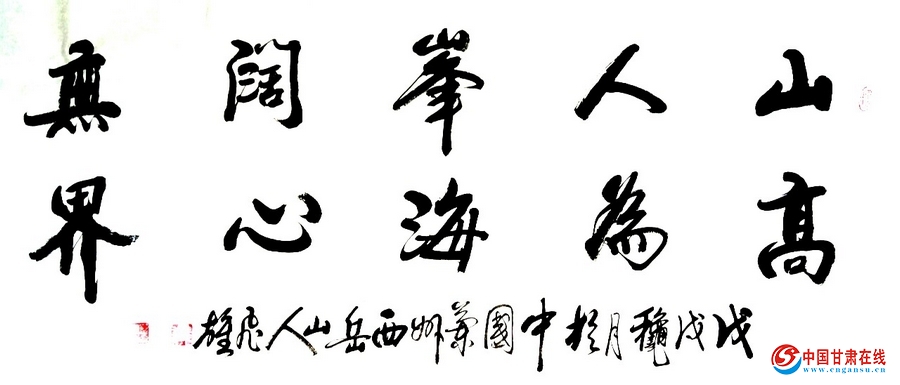 山高
人為
峯海
闊心
無界
戊戌穐月於中國蘭州西岳山人飛雄
中国甘肃在线
www.cngansu.cn